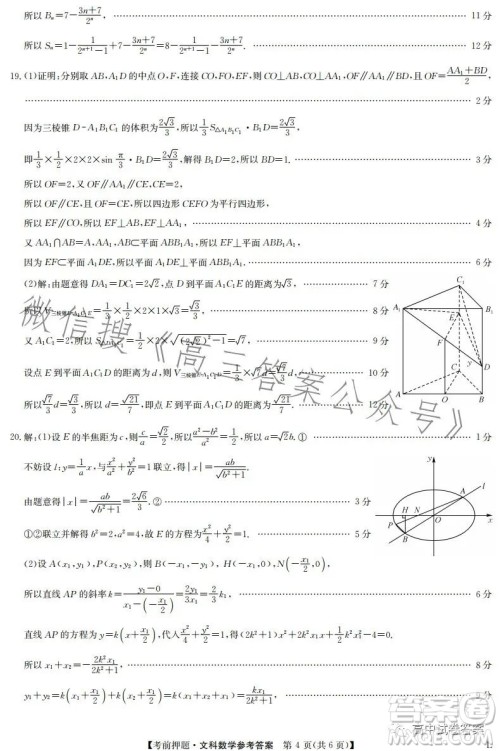 所以 Bₙ=7−(3n+7)/2ⁿ. 11 分
所以 Sₙ=1−1/(2ⁿ⁺¹−1)+7−(3n+7)/2ⁿ=8−1/(2ⁿ⁺¹−1)−(3n+7)/2ⁿ. 12 分
19.(1)证明:分别取 AB,A₁D 的中点 O,F,连接 CO,FO,EF,则 CO⊥AB,OF∥AA₁∥BD,且 OF=(AA₁+BD)/2,
2 分
因为三棱锥 D-A₁B₁C₁ 的体积为 2√3/3,所以 1/3 S△A₁B₁C₁·B₁D=2√3/3,
即 1/3×1/2×2×2×sin π/3·B₁D=2√3/3,解得 B₁D=2,所以 BD=1. 3 分
所以 OF=2,又 OF∥AA₁∥CE,CE=2,
所以 OF∥CE,OF=CE,所以四边形 CEFO 为平行四边形,
所以 EF∥CO,所以 EF⊥AB,EF⊥AA₁, 4 分
又 AA₁∩AB=A,AA₁,AB⊂平面 ABB₁A₁,所以 EF⊥平面 ABB₁A₁,
因为 EF⊂平面 A₁DE,所以平面 A₁DE⊥平面 ABB₁A₁. 6 分
(2)解:由题意得 DA₁=DC₁=2√2,点 D 到平面 A₁C₁E 的距离为√3, 7 分
所以 V三棱锥D-A₁C₁E=1/3×1/2×2×1×√3=√3/3, 8 分
又 A₁C₁=2,所以 S△A₁C₁D=1/2×2×√((2√2)²−1)=√7, 10 分
设点 E 到平面 A₁C₁D 的距离为 d,则 V三棱锥E-A₁C₁D=1/3×√7 d=√7/3 d,
所以 √7/3 d=√3/3,所以 d=√21/7,即点 E 到平面 A₁C₁D 的距离为 √21/7. 12 分
C₁
A₁
B₁
E
F
D
C
A
O
B
20.解:(1)设 E 的半焦距为 c,则 c/a=√2/2,所以 (a²−b²)/a²=1/2,所以 a=√2b.① 1 分
不妨设 l:y=1/a x,与 x²/a²+y²/b²=1 联立,得|x|=ab/√(b²+1),
由题意得|x|=ab/√(b²+1)=2√6/3.② 3 分
①②联立并解得 b²=2,a²=4,故 E 的方程为 x²/4+y²/2=1. 5 分
(2)设 A(x₁,y₁),P(x₂,y₂),则 B(−x₁,−y₁),H(−x₁,0),N(−x₁/2,0),
所以直线 AP 的斜率 k=(y₁−0)/(x₁−(−x₁/2))=2y₁/3x₁=2/3 k₁, 6 分
直线 AP 的方程为 y=k(x+x₁/2),代入 x²/4+y²/2=1,得(2k²+1)x²+2k²x₁x+1/2 k²x₁²−4=0.
所以 x₁+x₂=−2k²x₁/(2k²+1), 8 分
y₁+y₂=k(x₁+x₁/2)+k(x₂+x₁/2)=kx₁/(2k²+1). 9 分
y
l
A
H
N
O
x
P
B
微信搜《高三答案公众号》
高中试卷答案
【考前押题·文科数学参考答案 第 4 页(共 6 页)】